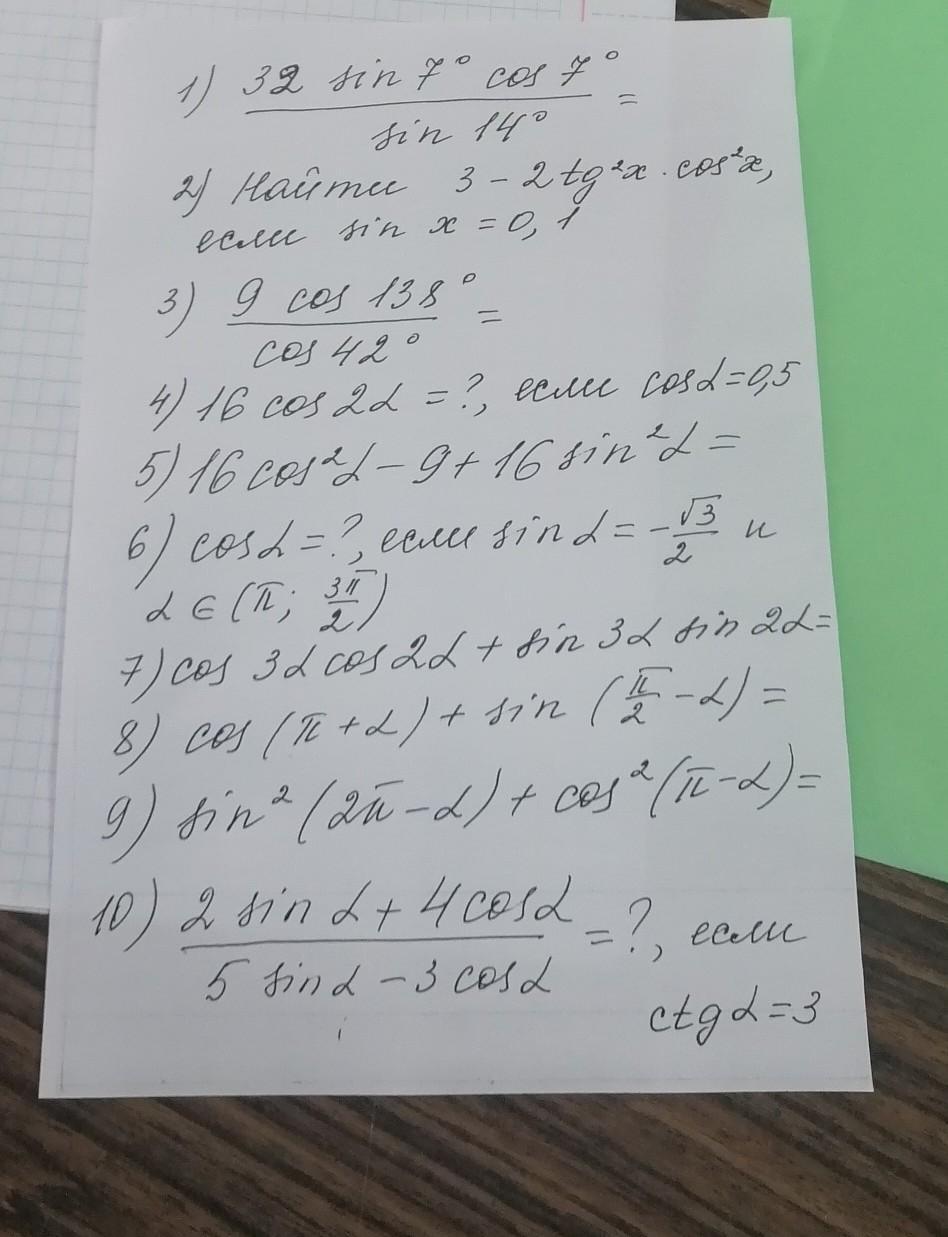 1) 32 sin 7° cos 7° / sin 14° =
2) Найти 3 - 2 tg²x · cos²x,
если sin x = 0,1
3) 9 cos 138° / cos 42° =
4) 16 cos 2α = ?, если cosα = 0,5
5) 16 cos²α - 9 + 16 sin²α =
6) cosα = ?, если sin α = -√3/2 и
α ∈ (π; 3π/2)
7) cos 3α cos 2α + sin 3α sin 2α =
8) cos (π + α) + sin (π/2 - α) =
9) sin² (2π - α) + cos² (π - α) =
10) 2 sin α + 4 cosα / 5 sinα - 3 cosα = ?, если
ctg α = 3